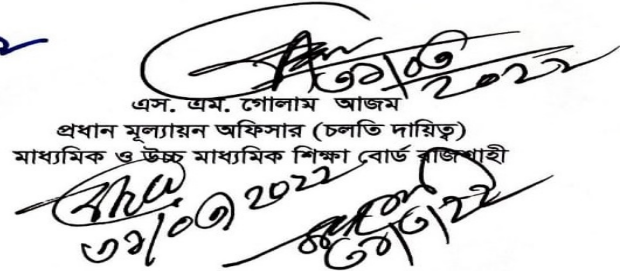 ৩১/০৩
২০২২
এস. এম. গোলাম আজম
প্রধান মূল্যায়ন অফিসার (চলতি দায়িত্ব)
মাধ্যমিক ও উচ্চ মাধ্যমিক শিক্ষা বোর্ড রাজশাহী
৩১/০৩/২০২২
৩১/৩/২২